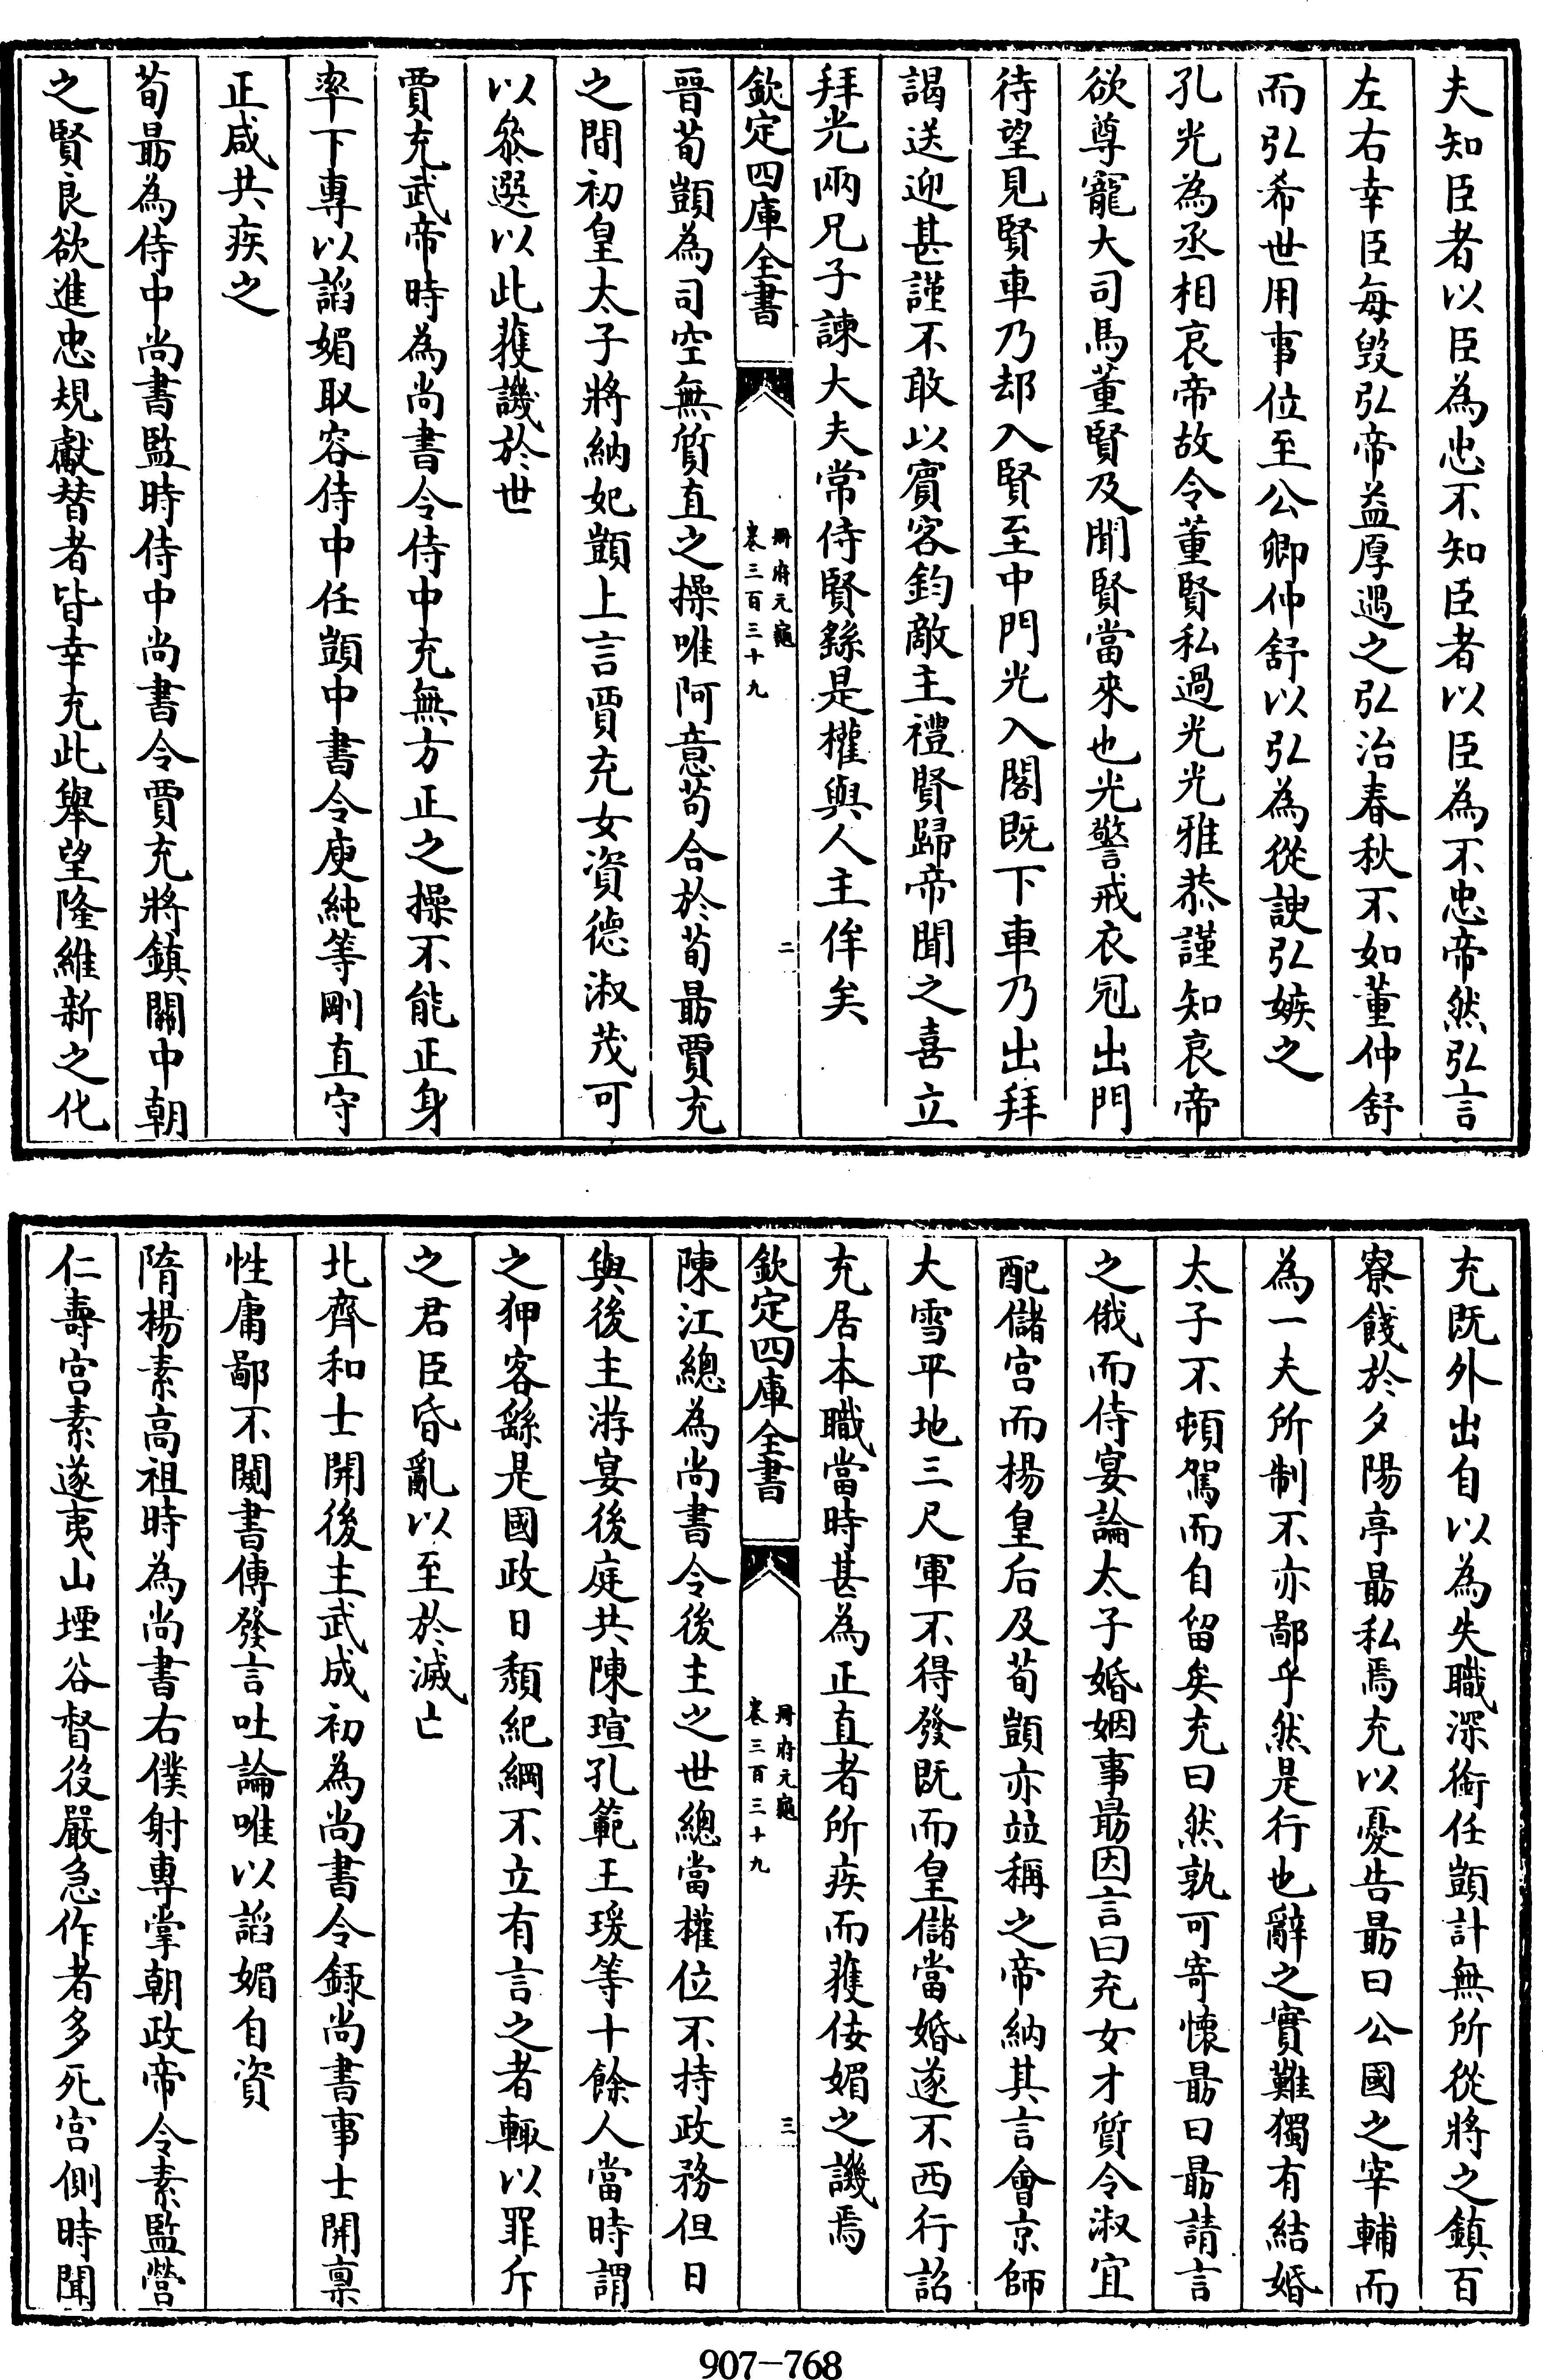 夫知臣者以臣為忠不知臣者以臣為不忠帝然弘言
左右幸臣每毁弘帝益厚遇之弘治春秋不如董仲舒
而弘希世用事位至公卿仲舒以弘為從諛弘嫉之
孔光為丞相哀帝故令董賢私過光光雅恭謹知哀帝
欲尊寵大司馬董賢及聞賢當來也光警戒衣冠出門
待望見賢車乃却入賢至中門光入閣既下車乃出拜
謁送迎甚謹不敢以賓客鈞敵主禮賢歸帝聞之喜立
拜光兩兄子諫大夫常侍賢繇是權與人主侔矣
欽定四庫全書
冊府元龜
卷三百三十九
二
晉荀顗為司空無質直之操唯阿意苟合於荀朂賈充
之間初皇太子將納妃顗上言賈充女資德淑茂可
以叅選以此獲譏於世
賈充武帝時為尚書令侍中充無方正之操不能正身
率下專以諂媚取容侍中任顗中書令庾純等剛直守
正咸共疾之
荀朂為侍中尚書監時侍中尚書令賈充將鎮關中朝
之賢良欲進忠規獻替者皆幸充此舉望隆維新之化
充既外出自以為失職深銜任顗計無所從將之鎮百
寮餞於夕陽亭朂私焉充以憂告朂曰公國之宰輔而
為一夫所制不亦鄙乎然是行也辭之實難獨有結婚
太子不頓駕而自留矣充曰然孰可寄懷朂曰朂請言
之俄而侍宴論太子婚姻事朂因言曰充女才質令淑宜
配儲宫而楊皇后及荀顗亦竝稱之帝納其言會京師
大雪平地三尺軍不得發既而皇儲當婚遂不西行詔
充居本職當時甚為正直者所疾而獲佞媚之譏焉
欽定四庫全書
冊府元龜
卷三百三十九
三
陳江總為尚書令後主之世總當權位不持政務但日
與後主游宴後庭共陳瑄孔範王瑗等十餘人當時謂
之狎客繇是國政日頽紀綱不立有言之者輒以罪斥
之君臣昏亂以至於滅亡
北齊和士開後主武成初為尚書令錄尚書事士開禀
性庸鄙不閱書傳發言吐論唯以諂媚自資
隋楊素高祖時為尚書右僕射專掌朝政帝令素監營
仁壽宫素遂夷山堙谷督役嚴急作者多死宫側時聞
907-768